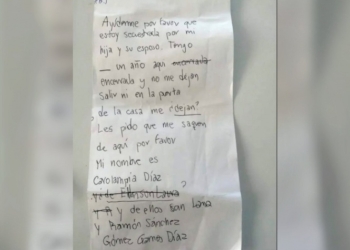 Ayúdenme por favor que
estoy secuestrada por mi
hija y su esposo. Tengo
un año aquí encerrada
encerrada y no me dejan
salir ni en la puerta
de la casa me dejan
Les pido que me saquen
de aquí por favor
Mi nombre es
Díaz
y de ellos son Lara
y Ramón Sánchez
Gómez Díaz